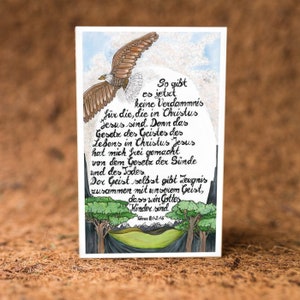 So gibt
es jetzt
keine Verdammnis
für die, die in Christus
Jesus sind. Denn das
Gesetz des Geistes des
Lebens in Christus Jesus
hat mich frei gemacht
von dem Gesetz der Sünde
und des Todes
Der Geist selbst gibt Zeugnis
zusammen mit unserem Geist,
dass wir Gottes
Kinder sind.